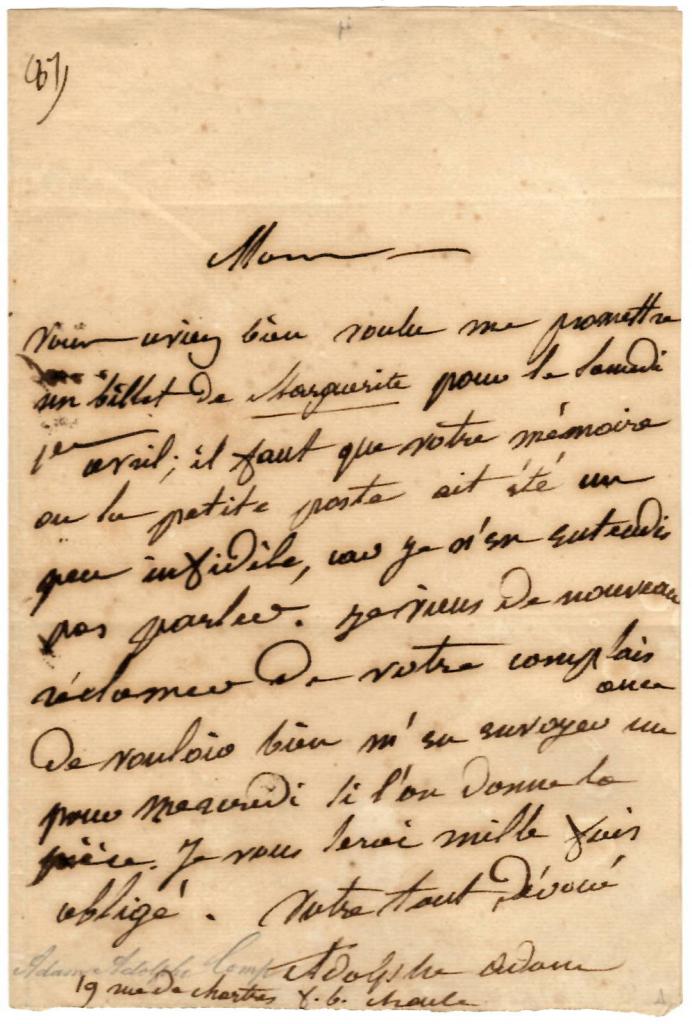 Mons
vous aviez bien voulu me promettre
un billet de Marguerite pour le Samedi
1er avril; il faut que votre mémoire
ou la petite poste ait été un
peu infidèle, car je n'en entendis
pas parler. je viens de nouveau
réclamer de votre complais
ance
de vouloir bien m'en envoyer un
pour mercredi si l'on donne la
pièce. Je vous serai mille fois
obligé. Votre tout dévoué
Adolphe adam
Adam Adolphe Comp
19 rue de chartres f. b.